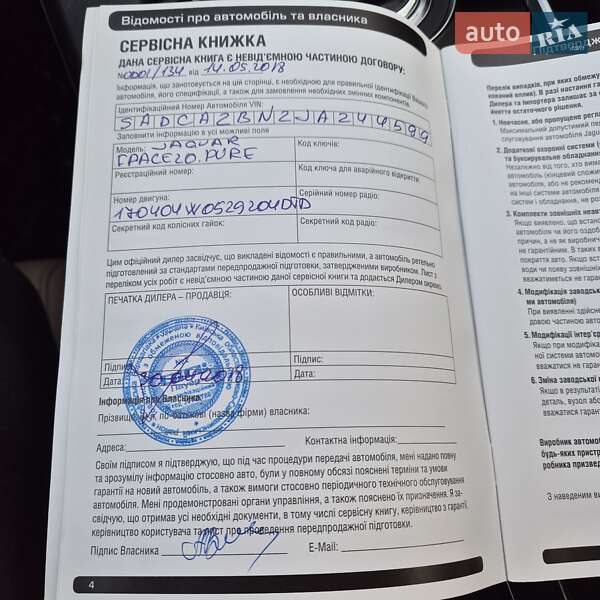 Відомості про автомобіль та власника
СЕРВІСНА КНИЖКА
ДАНА СЕРВІСНА КНИГА Є НЕВІД'ЄМНОЮ ЧАСТИНОЮ ДОГОВОРУ:
№0001/134 від 14.05.2018
Інформація, що занотовується на цій сторінці, є необхідною для правильної ідентифікації Вашого
автомобіля, його специфікації, а також для замовлення необхідних змінних компонентів.
Ідентифікаційний Номер Автомобіля VIN:
SADCA2BN2JA244599
Заповнити інформацію в усі можливі поля
Модель: JAGUAR
EPACE20.PURE
Код ключів:
Реєстраційний номер:
Код ключа для аварійного відкриття:
Номер двигуна:
170404W0529204DTD
Серійний номер радіо:
Секретний код колісних гайок:
Секретний код радіо:
Цим офіційний дилер засвідчує, що викладені відомості є правильними, а автомобіль ретельно
підготовлений за стандартами передпродажної підготовки, затвердженими виробником. Лист з
переліком усіх робіт є невід'ємною частиною даної сервісної книги та додається Дилером окремо.
ПЕЧАТКА ДИЛЕРА – ПРОДАВЦЯ:
ОСОБЛИВІ ВІДМІТКИ:
Підпис:
Дата: 30.04.2018
Підпис:
Дата:
Інформація про Власника:
Прізвище, ім'я, по-батькові (назва фірми) власника:
Адреса:
Контактна інформація:
Своїм підписом я підтверджую, що під час процедури передачі автомобіля, мені надано повну
та зрозумілу інформацію стосовно авто, були у повному обсязі пояснені терміни та умови
гарантії на новий автомобіль, а також вимоги стосовно періодичного технічного обслуговування
автомобіля. Мені продемонстровані органи управління, а також пояснено їх призначення. Я за-
свідчую, що отримав усі необхідні документи, в тому числі сервісну книгу, керівництво з гарантії,
керівництво користувача та лист про проведення передпродажної підготовки.
Підпис Власника
E-Mail:
4
auto RIA
.com
Перелік випадків, при яких обмежу
Дилера та Імпортера залишає за с
1. Невчасне, або пропущене регла
Максимальний допустимий пе
обслуговування автомобіля Jagua
2. Додаткові охоронні системи (
та буксирувальне обладнання
Незалежно від того, хто вима
3. Комплекти зовнішніх неавт
Якщо виявлено, що встанов
4. Модифікація заводсько
ми автомобіля)
При виявленні здійсне
довою частиною автом
5. Модифікації інтер'єр
Якщо при модифіка
ної системи автомо
вважатися не гарант
6. Зміна заводської к
Якщо в результаті
деталь, вузол або
вважатися гарант
Виробник автомо
будь-яких пристр
робника призвед
З наведеним ви